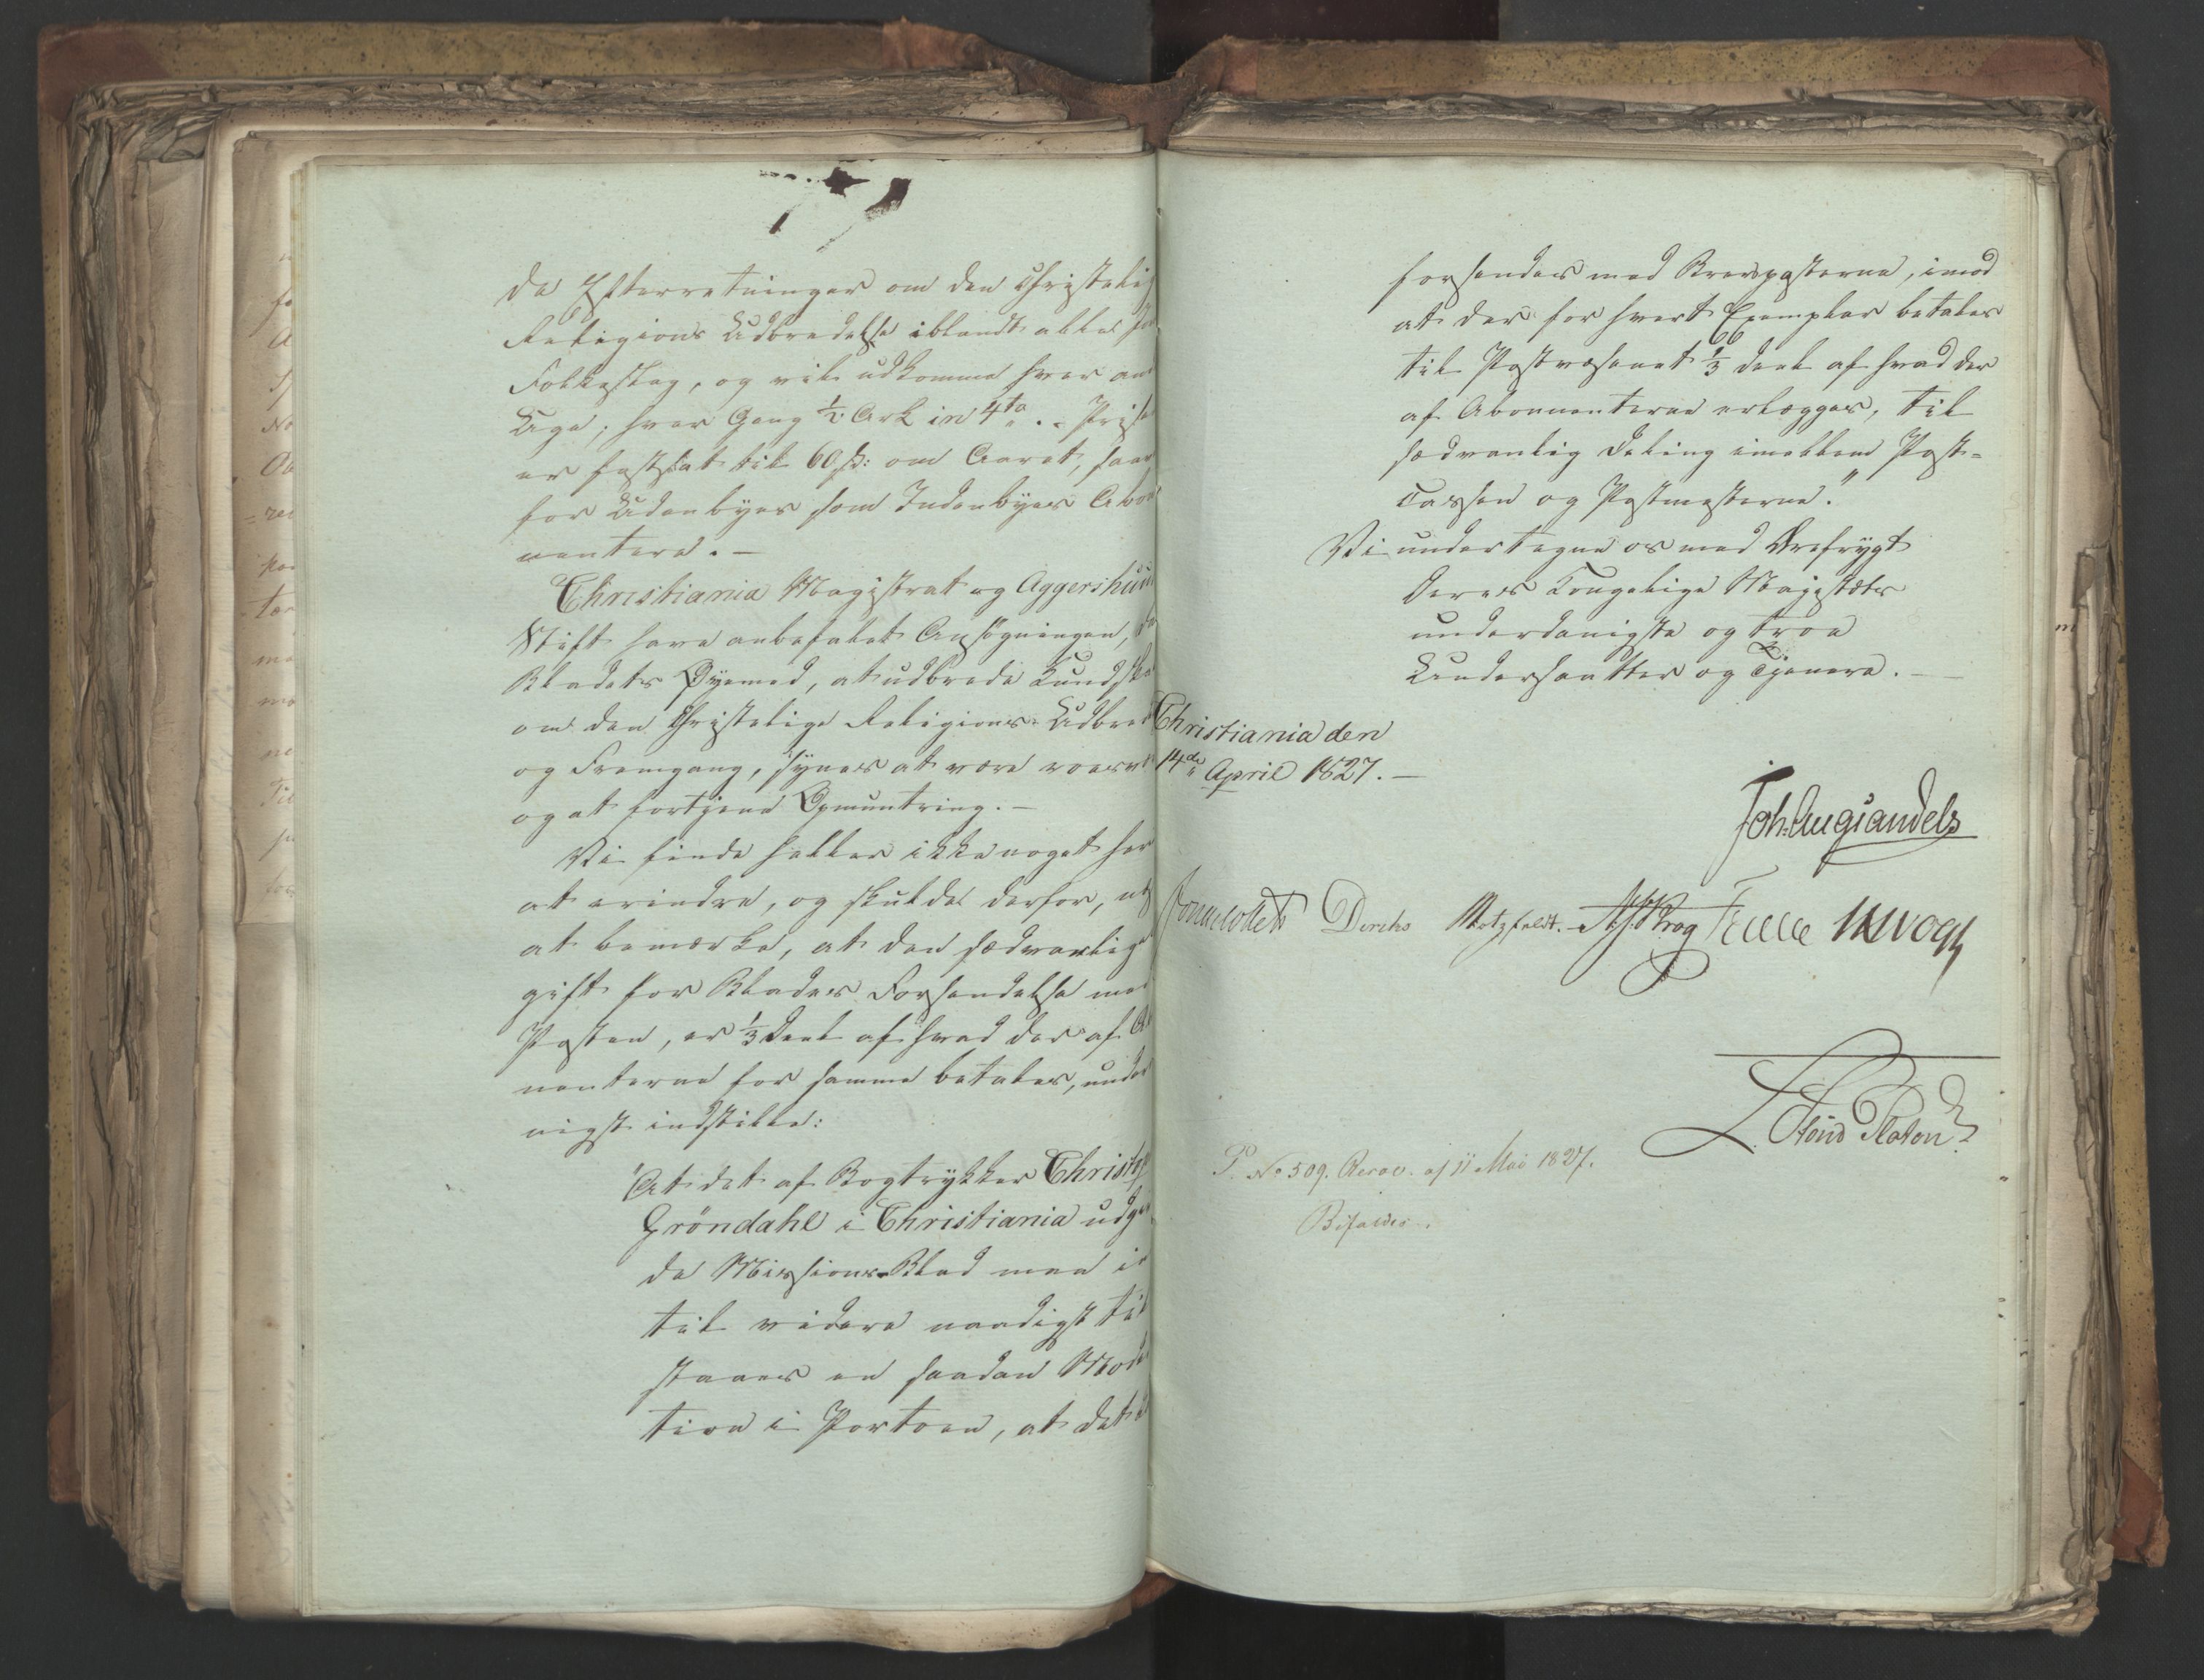 de Efterretninger om den Christelig
Religions Udbredelse iblandt alle
Folkeslag, og vil udkomme hver an
Uge, hver Gang ½ Ark in 4to. Prise
er fastsat til 60 ß: om Aaret, saav
for Udenbyes som Indenbyes Abon
nentere. –
Christiania Magistrat og Aggershuus
Stift have anbefalet Ansögningen, da
Bladets Öyemed, at udbrede Kundska
om den Christelige Religions Udbred
og Fremgang, synes at være
og at fortjene Opmuntring. –
Vi finde heller ikke noget her
at erindre, og skulde derfor,
at bemærke, at den sædvanlige
gift for Blades Forsendelse med
Posten, er ⅓ Deel af hvad der af Ab
nenterne for samme betales, under
nigst indstille:
"At det af Bogtrykker Christop
Gröndahl i Christiania udgiv
de Missions-Blad maa in
til videre naadigst til
staaes en saadan Mode
tion i Portoen, at det
forsendes med Brevposterne, imod
at der for hvert Exemplar betales
til Postvæsenet ⅓ Deel af hvad der
af Abonnenterne erlægges, til
sædvanlig Deling imellem Post-
Cassen og Postmesterne."
Vi undertegne os med Ærefrygt
Deres Kongelige Majestæts
underdanigste og troe
Undersaatter og Tjenere. –
Christiania den
14de April 1827. –
Joh: Aug: Sandels
Jonas Collett Diriks Motzfeldt. Krog Treschow Vogt
L. Stoud Platou
P. No 509. Resol. af 11 Mai 1827.
Bifaldes.